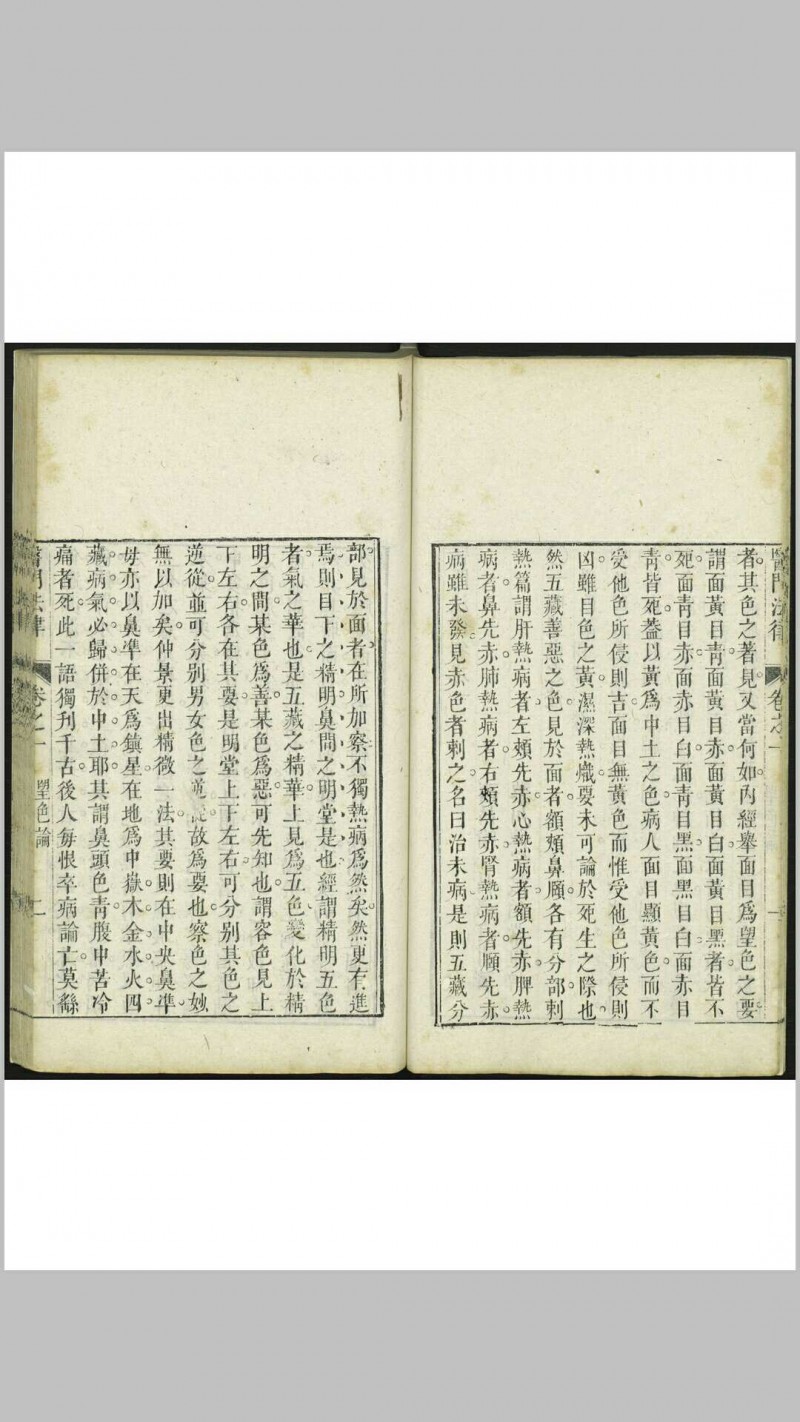 醫門法律 卷之一
者其色之著見又當何如內經舉面目爲望色之要
謂面黃目靑面黃目赤面黃目白面黃目黑者皆不
死面靑目赤面赤目白面靑目黑面黑目白面赤目
靑皆死蓋以黃爲中土之色病人面目顯黃色而不
受他色所侵則吉面目無黃色而惟受他色所侵則
凶雖目色之黃濕深熱熾要未可論於死生之際也
然五藏善惡之色見於面者額頰鼻頤各有分部刺
熱篇謂肝熱病者左頰先赤心熱病者額先赤脾熱
病者鼻先赤肺熱病者右頰先赤腎熱病者頤先赤
病雖未發見赤色者刺之名曰治未病是則五藏分
部見於面者在所加察不獨熱病爲然矣然更有進
焉則目下之精明鼻間之明堂是也經謂精明五色
者氣之華也是五藏之精華上見爲五色變化於精
明之間某色爲善某色爲惡可先知也謂容色見上
下左右各在其要是明堂上下左右可分別其色之
逆從並可分別男女色之逆從故爲要也察色之妙
無以加矣仲景更出精微一法其要則在中央鼻準
毋亦以鼻準在天爲鎭星在地爲中嶽木金水火四
藏病氣必歸併於中土耶其謂鼻頭色靑腹中苦冷
痛者死此一語獨刋千古後人每恨卒病論亡莫繇
醫門法律 卷之一 望色論 二